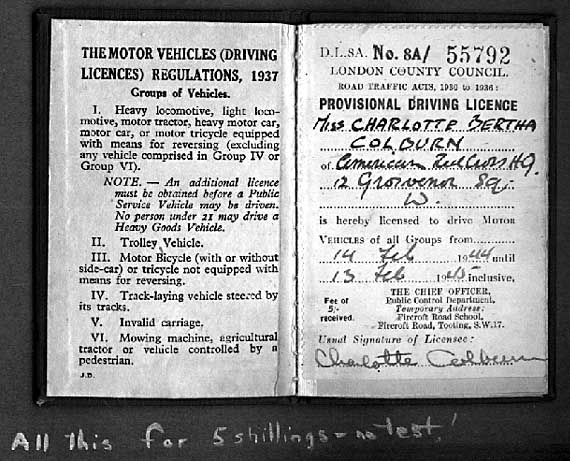 THE MOTOR VEHICLES (DRIVING
LICENCES) REGULATIONS, 1937
Groups of Vehicles.
I. Heavy locomotive, light loco-
motive, motor tractor, heavy motor car,
motor car, or motor tricycle equipped
with means for reversing (excluding
any vehicle comprised in Group IV or
Group VI).
NOTE. — An additional licence
must be obtained before a Public
Service Vehicle may be driven.
No person under 21 may drive a
Heavy Goods Vehicle.
II. Trolley Vehicle.
III. Motor Bicycle (with or without
side-car) or tricycle not equipped with
means for reversing.
IV. Track-laying vehicle steered by
its tracks.
V. Invalid carriage.
VI. Mowing machine, agricultural
tractor or vehicle controlled by a
pedestrian.
J.D.
D.L.SA. No. 8A/ 55792
LONDON COUNTY COUNCIL.
ROAD TRAFFIC ACTS, 1930 to 1936:
PROVISIONAL DRIVING LICENCE
Miss CHARLOTTE BERTHA
COLBURN
of American Red Cross HQ.
12 Grosvenor Sq.
W.
is hereby licensed to drive MOTOR
VEHICLES of all Groups from
14 Feb 1944 until
13 Feb 1945 inclusive.
THE CHIEF OFFICER,
Public Control Department,
Temporary Address:
Fircroft Road School,
Fircroft Road, Tooting, S.W.17.
Fee of
5/-
received.
Usual Signature of Licensee:
Charlotte Colburn
All this for 5 shillings - no test!